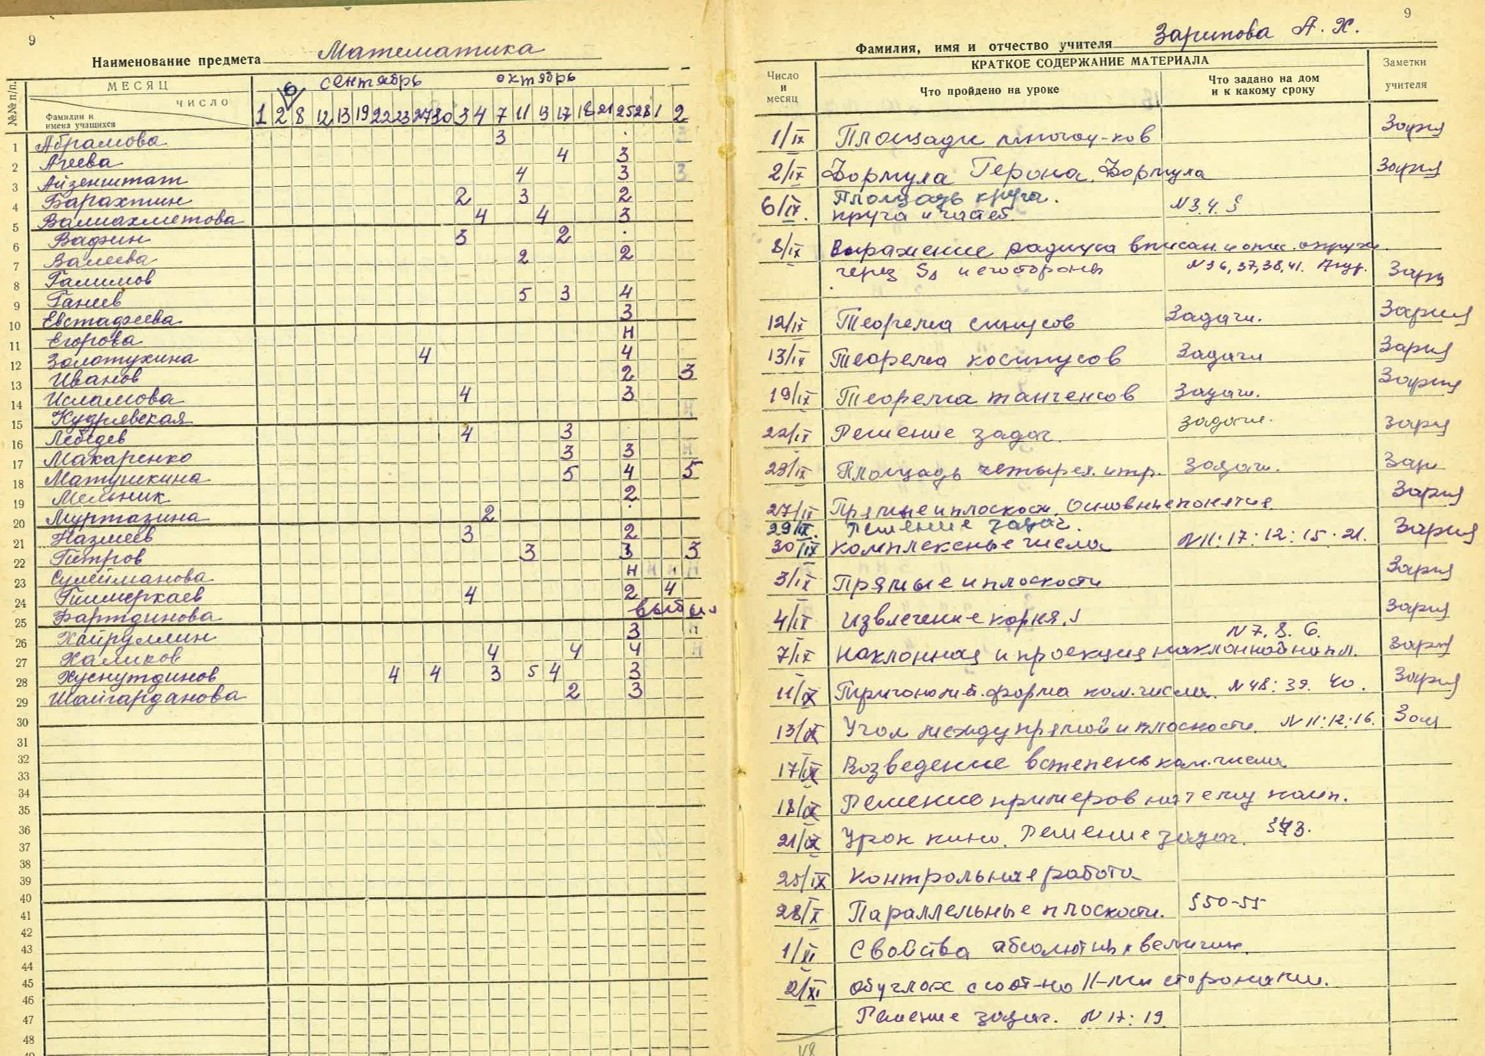 9
Наименование предмета Математика
МЕСЯЦ сентябрь октябрь
ЧИСЛО
№№ п/п.
Фамилии и имена учащихся
6
1 2 8 12 13 19 22 23 27 30 3 4 7 11 13 17 18 21 25 28 1 2
1 Абрамова 3
2 Агеева 4 3
3 Айзенштат 4 3 3
4 Барахтин 2 3 2
5 Валиахметова 4 4 3
6 Вафин 3 2
7 Валеева 2 2
8 Галимов
9 Ганеев 5 3 4
10 Евстафеева 3
11 Егорова н
12 Золотухина 4 4
13 Иванов 2 3
14 Исламова 4 3
15 Кудриевская н
16 Лебедев 4 3
17 Макаренко 3 3 н
18 Матушкина 5 4 5
19 Мельник 2
20 Муртазина 2
21 Назмеев 3 2
22 Петров 3 3 3
23 Сулейманова н н н н
24 Тимеркаев 4 2 4
25 Фартдинова выбыл
26 Хайруллин 3 н
27 Халиков 4 4 4 н
28 Хуснутдинов 4 4 3 5 4 3
29 Шайгарданова 2 3
30
31
32
33
34
35
36
37
38
39
40
41
42
43
44
45
46
47
48
9
Фамилия, имя и отчество учителя Зарипова А. Х.
КРАТКОЕ СОДЕРЖАНИЕ МАТЕРИАЛА
Число и месяц
Что пройдено на уроке
Что задано на дом и к какому сроку
Заметки учителя
1/IX Площади многоу-ков Зарип
2/IX Формула Герона. Формула Зарип
6/IX. Площадь круга. N 3, 4, 5
круга и частей
8/IX Выражение радиуса вписан. и опис. окруж.
через S∆ и его стороны N 36, 37, 38, 41. Зарип
12/IX Теорема синусов Задачи. Зарип
13/IX Теорема косинусов Задачи Зарип
19/IX Теорема тангенсов Задачи. Зарип
22/IX Решение задач. задачи. Зарип
23/IX Площадь четырех. и тр. Задачи. Зар
27/IX Прямые и плоскост. Основные понятия Зарип
29/IX. Решение задач.
30/IX комплексные числа N 11; 17; 12; 15. 21. Зарип
3/IX Прямые и плоскости Зарип
4/IX Извлечение корня. Зарип
N 7, 8, 6.
7/IX Наклонная и проекция наклонной на пл. Зарип
11/IX Тригоном. форма ком. числа. N 48; 39. 40. Зарип
13/IX Угол между прямой и плоскости. N 11; 12; 16. Зар
17/IX Возведение в степень ком. числа
18/IX Решение примеров на тему комп.
21/IX Урок кино. Решение задач. §43.
25/IX Контрольная работа
28/X Параллельные плоскости. §50-55
1/XI Свойства абсолютных величин.
2/XI Об углах с соот-но ||-ми сторонами.
Решение задач. N 17; 19